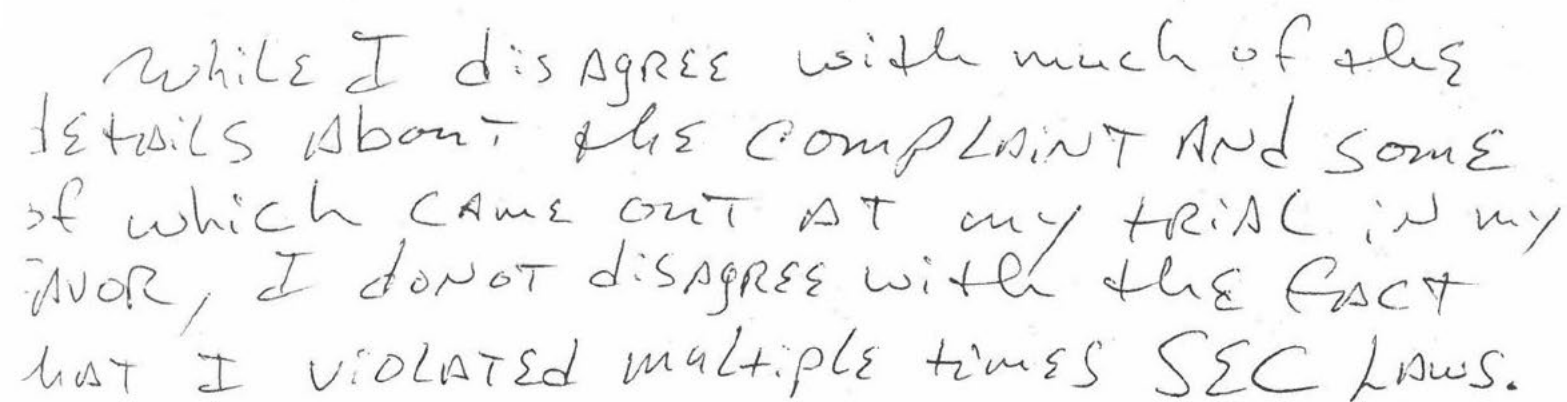 While I disAgREE with much of the
details About the COMPLAINT ANd SOME
of which CAME OUT AT my tRiAL iN my
FAVOR, I doNOT disAgREE with thE FACT
that I ViOLATEd multiple timES SEC LAWS.